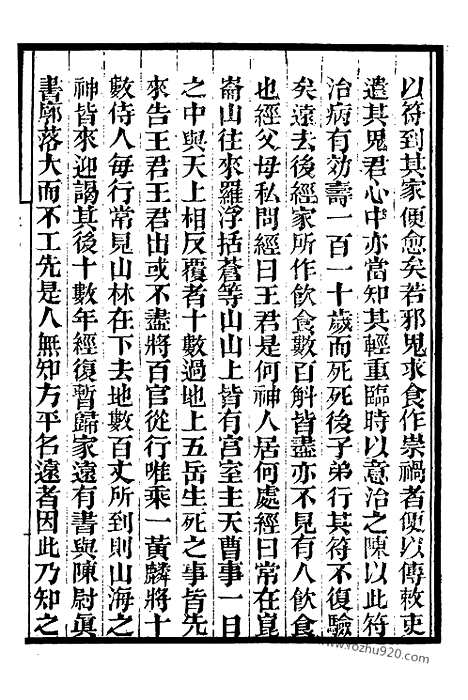 以符到其家便愈矣若邪鬼求食作祟禍者便以傳敕吏
遣其鬼君心中亦當知其輕重臨時以意治之陳以此符
治病有効壽一百一十歲而死死後子弟行其符不復驗
矣遠去後經家所作飲食數百斛皆盡亦不見有人飲食
也經父母私問經曰王君是何神人居何處經曰常在崑
崙山往來羅浮括蒼等山山上皆有宮室主天曹事一日
之中與天上相反覆者十數過地上五岳生死之事皆先
來告王君王君出或不盡將百官從行唯乘一黃麟將十
數侍人每行常見山林在下去地數百丈所到則山海之
神皆來迎謁其後十數年經復暫歸家遠有書與陳尉眞
書廓落大而不工先是人無知方平名遠者因此乃知之
www.yozhu920.com